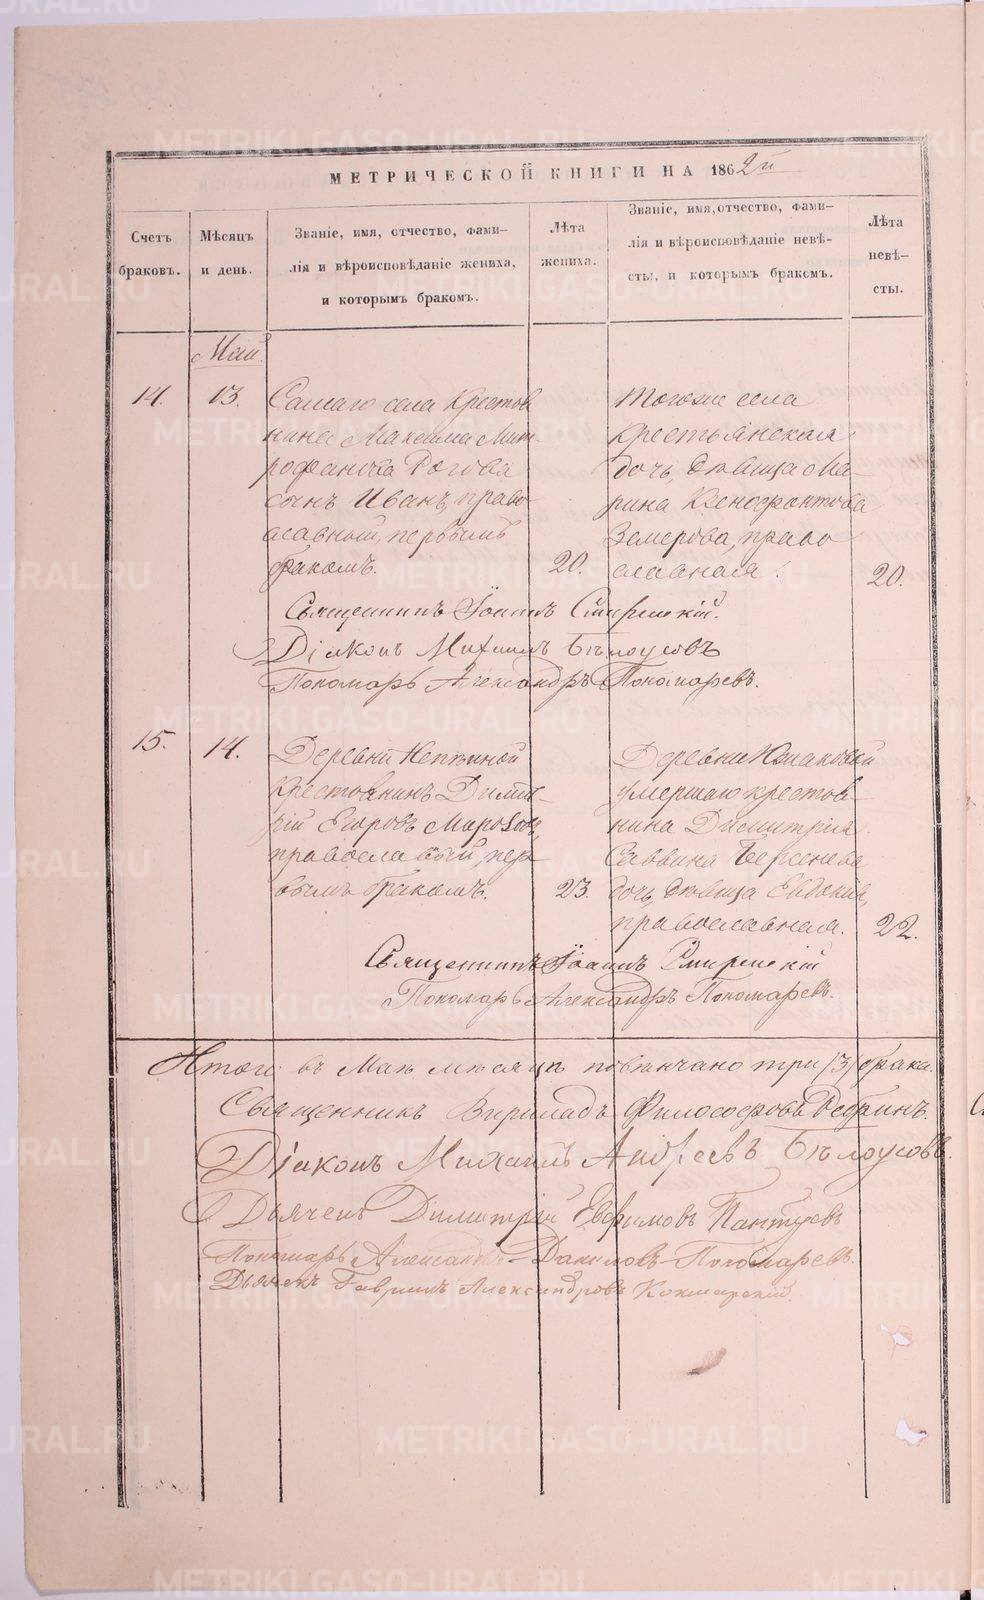 МЕТРИЧЕСКОЙ КНИГИ НА 1862й
Счетъ
браковъ.
Мѣсяцъ
и день.
Званіе, имя, отчество, фами-
лія и вѣроисповѣданіе жениха,
и которымъ бракомъ.
Лѣта
жениха.
Званіе, имя, отчество, фами-
лія и вѣроисповѣданіе невѣ-
сты, и которымъ бракомъ.
Лѣта
невѣ-
сты.
Май.
14.
13.
Самаго села Крестья
нина Максима Мит-
рофанова Рогова
сынъ Иванъ, право
славный, первымъ
бракомъ.
20.
Тогоже села
крестьянская
дочь, дѣвица Ма-
рина Ксенофонтова
Земерова, право
славная.
20.
Священникъ Іоаннъ Смиренскій.
Діаконъ Михаилъ Бѣлоусовъ
Пономарь Александръ Пономаревъ.
15.
14.
Деревни
крестьянинъ Димит-
рій Егоровъ
православный, пер-
вымъ бракомъ.
23.
Деревни
умершаго крестья
нина Димитрія
Саввина Берсенева
дочь, дѣвица Евдокія,
православная.
22.
Священникъ Іоаннъ Смиренскій
Пономарь Александръ Пономаревъ.
Итого въ Маѣ мѣсяцѣ повѣнчано три /3/ брака.
Священникъ Философовъ Ребринъ.
Діаконъ Михаилъ Андреевъ Бѣлоусовъ.
Дьячекъ Димитрій Евфимовъ Пантуевъ
Пономарь Александръ Даниловъ Пономаревъ.
Дьячекъ Гавриилъ Александровъ Кокшарскій.
METRIKI.GASO-URAL.RU